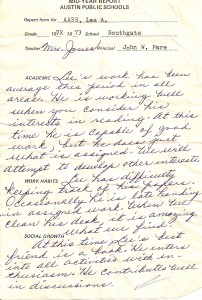 MID-YEAR REPORT
AUSTIN PUBLIC SCHOOLS
Report form for AASE, Lee A.
Grade 1972 a 73 School Southgate
Teacher Mrs. Jones Principal John W. Pare
ACADEMIC Lee's work has been
average this period in all
areas. He is working well
when you consider his
interests in reading. At this
time he is capable of good
work, but he does just
what is assigned. We will
attempt to develop other interests
WORK HABITS Lee has difficulty
keeping track of his papers.
Occasionally he is late handing
in assigned work. When we
clean his desk, it is amazing
what we find!
SOCIAL GROWTH
At this time Lee's best
friend is a book. He enters
into all activities with en-
thusiasm. He contributes well
in discussions.